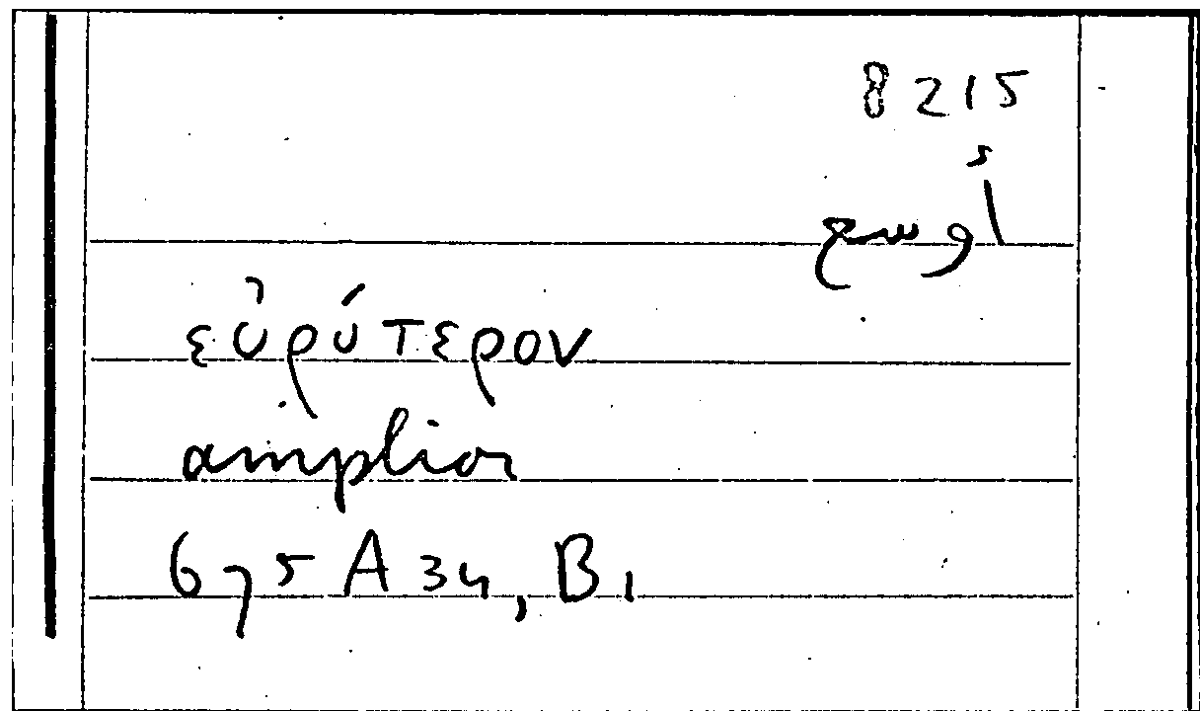 8215
أوسع
εὐρύτερον
amplior
675 A 34, B 1